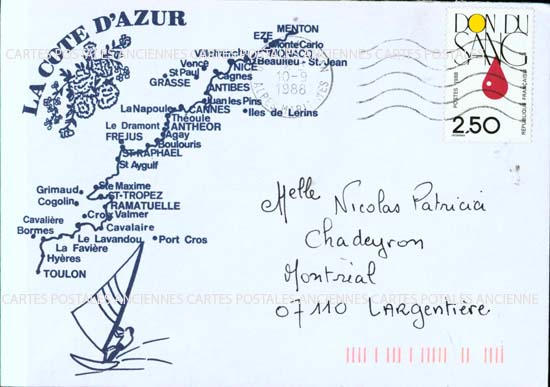 LA CÔTE D'AZUR
MENTON
EZE
Monte Carlo
MONACO
Beaulieu - St. Jean
NICE
Vence
St Paul
Cagnes
GRASSE
ANTIBES
Juan les Pins
CANNES
Iles de Lérins
La Napoule
Théoule
Le Dramont
ANTHEOR
Agay
FREJUS
Boulouris
ST-RAPHAEL
St Aygulf
Ste Maxime
Grimaud
ST-TROPEZ
Cogolin
RAMATUELLE
Croix Valmer
Cavalière
Cavalaire
Bormes
Le Lavandou
Port Cros
La Favière
Hyères
TOULON
10-9
1988
DON DU
SANG
POSTES 1988
RÉPUBLIQUE FRANÇAISE
2.50
Melle Nicolas Patricia
Chadeyron
Montréal
07110 LARgentière
CARTES POSTALES ANCIENNES CARTES POSTALES ANCIENNES CARTES POSTALES ANCIENNES
CARTES POSTALES ANCIENNES CARTES POSTALES ANCIENNES CARTES POSTALES ANCIENNE